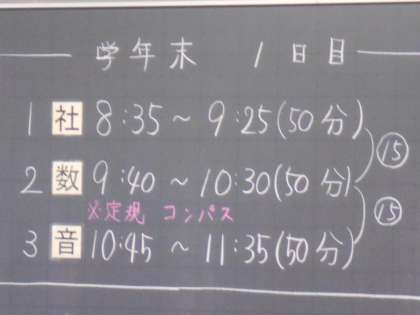 学年末 1日目
1 社 8:35 ~ 9:25(50分)
⑮
2 数 9:40 ~ 10:30(50分)
※定規 コンパス
⑮
3 音 10:45 ~ 11:35(50分)